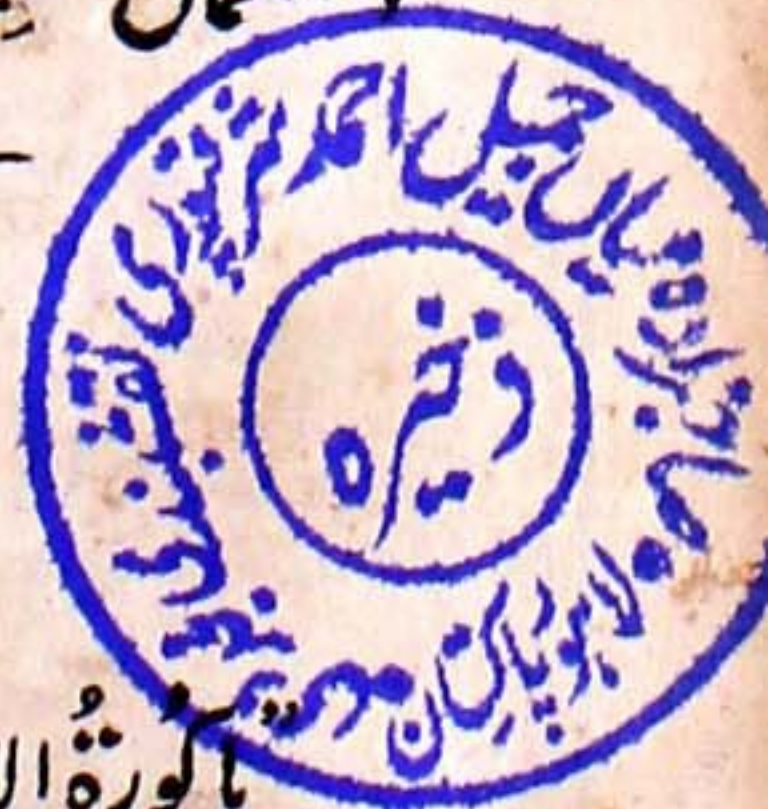 صاحبزادہ میاں جمیل احمد شرقپوری نقشبندی مجددی
لاہور پاکستان
ذخیرہ